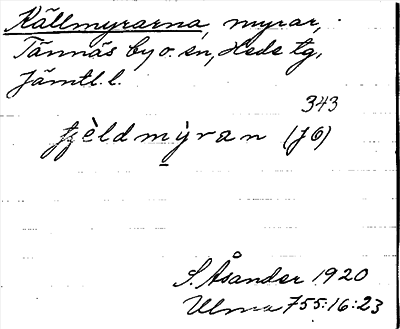 Källmyrarna, myrar,
Tännäs by o. sn, Heds tg,
Jämtl. l.
343
fjèldmỳran (JÖ)
S. Åsander 1920
Ulma 755:16:23